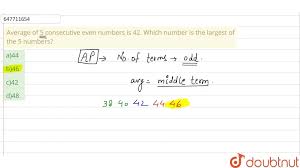 647711654
Average of 5 consecutive even numbers is 42. Which number is the largest of
the 5 numbers?
a)44
b)46
c)42
d)48
AP → No. of terms → odd.
avg = middle term.
38 40 42 44 46
doubtnut